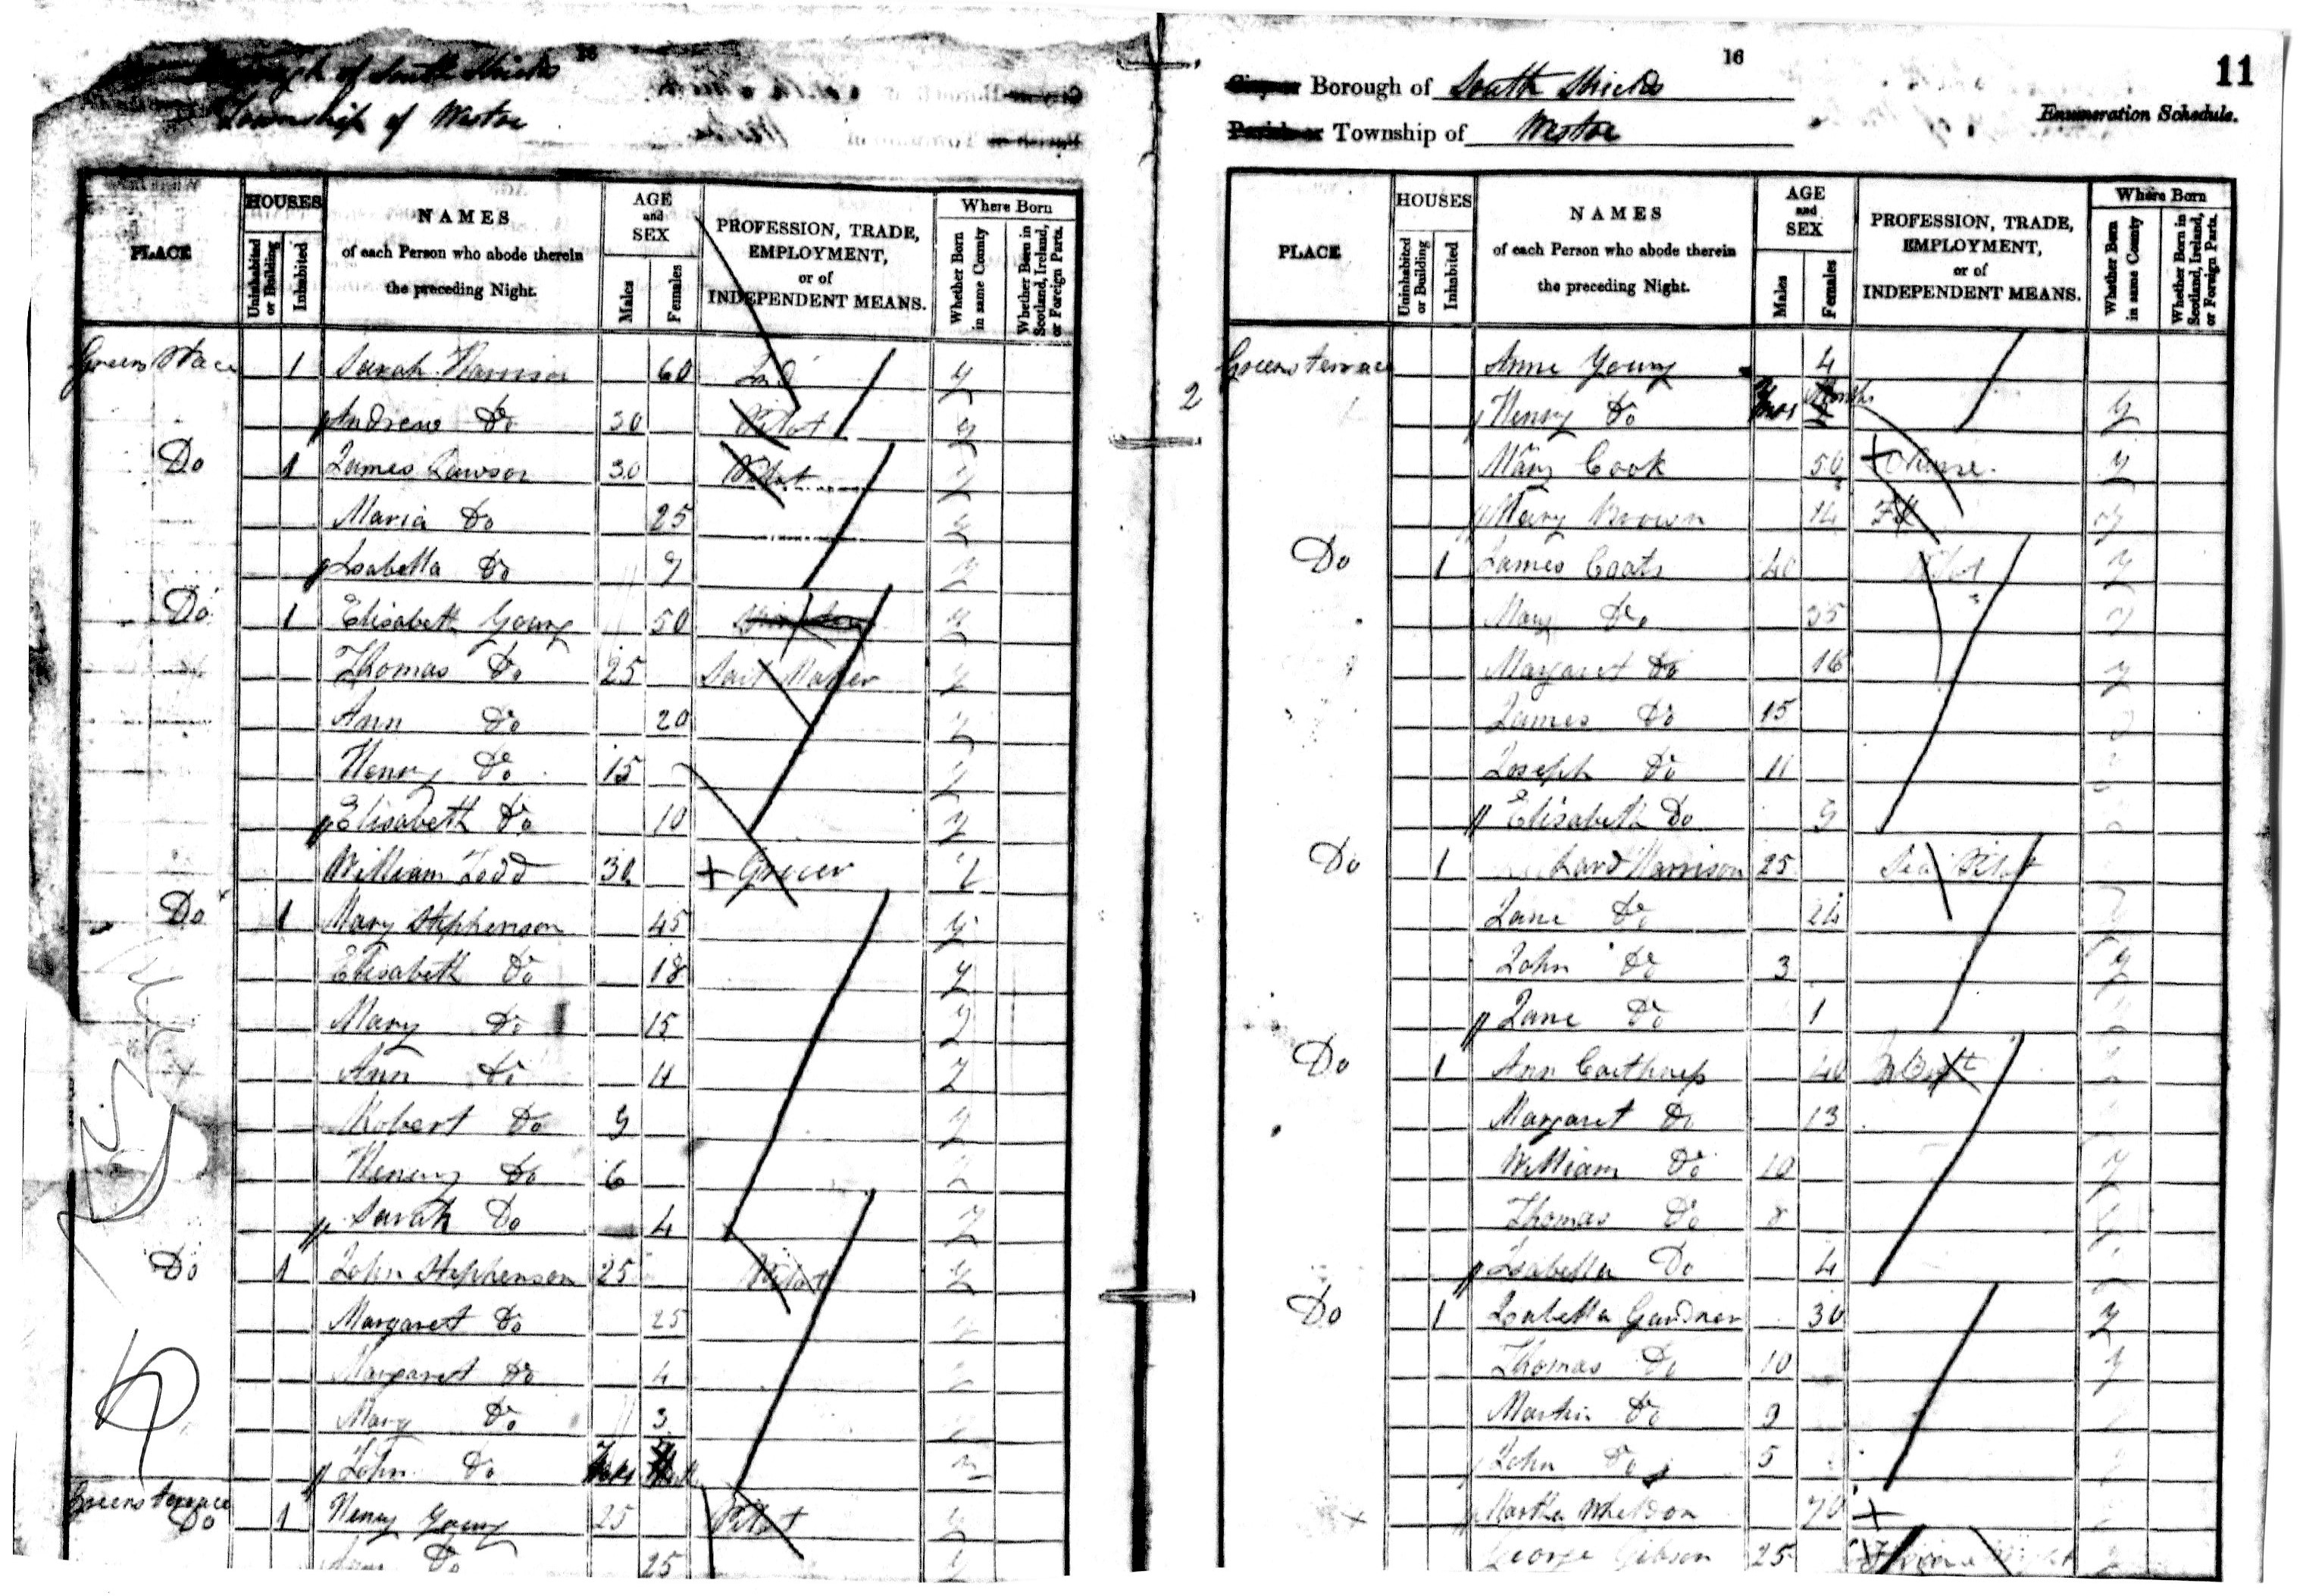 16
Borough of South Shields
Township of Westoe
PLACE
HOUSES
Uninhabited or Building
Inhabited
NAMES
of each Person who abode therein
the preceding Night.
AGE
and
SEX
Males
Females
PROFESSION, TRADE,
EMPLOYMENT,
or of
INDEPENDENT MEANS.
Where Born
Whether Born in same County
Whether Born in Scotland, Ireland, or Foreign Parts.
Greens 1 Sarah Harrison 60 Ind y
Andrew Do 30 Pilot y
Do 1 James Lawson 30 Pilot y
Maria Do 25 y
Isabella Do y
Do 1 Elisabeth Young 50 y
Thomas Do 25 Sail Maker y
Ann Do 20 y
Henry Do 15 y
Elisabeth Do 10 y
William Todd 30 Grocer y
Do 1 Mary Stephenson 45 y
Elisabeth Do 18 y
Mary Do 15 y
Ann Do 11 y
Robert Do 9 y
Henery Do 6 y
Sarah Do 4 y
Do 1 John Stephenson 25 Pilot y
Margaret Do 25 y
Margaret Do 4 y
Mary Do 3 y
John Do
Greens terrace
Do 1 Henry Young 25 Pilot y
Do 25 y
16
11
City or Borough of South Shields
Enumeration Schedule.
Parish or Township of Westoe
PLACE
HOUSES
Uninhabited or Building
Inhabited
NAMES
of each Person who abode therein
the preceding Night.
AGE
and
SEX
Males
Females
PROFESSION, TRADE,
EMPLOYMENT,
or of
INDEPENDENT MEANS.
Where Born
Whether Born in same County
Whether Born in Scotland, Ireland, or Foreign Parts.
Greens terrace Anne Young 4
2 Henry Do y
Mary Cook 50 Nurse y
Mary Brown 14 FS y
Do 1 James Coats 40 Pilot y
Mary Do 35 y
Margaret Do 16 y
James Do 15
Joseph Do 11
Elisabeth Do 9
Do 1 Harrison 25 Sea Pilot
Jane Do 24 y
John Do 3 y
Jane Do 1
Do 1 Ann 40
Margaret Do 13
William Do 10 y
Thomas Do 8 y
Isabella Do 4
Do 1 Isabella Gardner 30 y
Thomas Do 10 y
Martin Do 9
John Do 5
Martha Wheldon 70
George Gibson 25